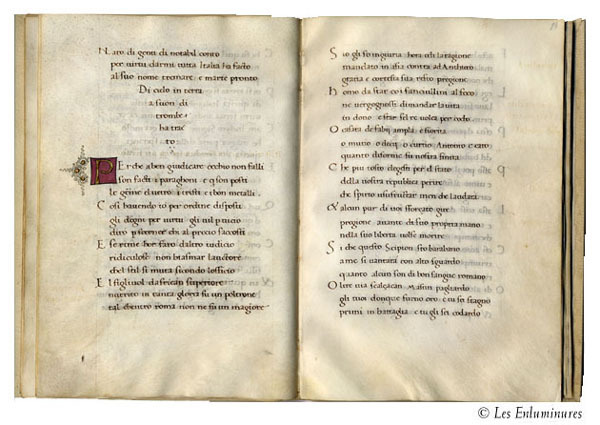 Nato di genti di notabil conto
per virtu darmi tutta Italia ha facto
al suo nome tremare e marte pronto
Di cielo in terra
a suon di
trombe
ha trac
to
PEr che a ben giudicare occhio non falli
son facti i paraghoni e q son posti
le gemme el vetro i tristi e bon metalli
Cosi havendo to per ordine disposti
gli degni per virtu gli nil
duro
E se rime hor faro daltro iudicio
ridiculose non biasmar lauctore
chel stil si muta secondo lofficio
El figliuol daffrican superiore
nutrito in tanta gloria fu un poltrone
tal dentro roma non ne fu un magiore
Sio gli so ingiuria hora odi la ragione
mandato in asia contra ad Anthioco
gratia e cortesia sua resto pregione
homo da star coi fanciullini al foco
ne vergognossi dimandar la vita
in dono e star sel re volea per coco
O casata de fabii ampla e fiorita
o mutio o decii o curtio Antonio e caro
quanto difforme fu vostra
Che piu tosto degesti per el stato
della vostra republica perire
che spirto usufructar men che laudato
& alcun pur di voi sforçato gire
pregione avante da suo propria mano
nella sua liberta volse morire
Si che questo Scipion sto barabano
a me si vantara con alto sguardo
quanto alcun son di bon sangue romano
Oltre via scalçacan Massin pagliardo
gli tuoi donque furno oro e tu se stagno
primi in battaglia e tu gli sei codardo
© Les Enluminures